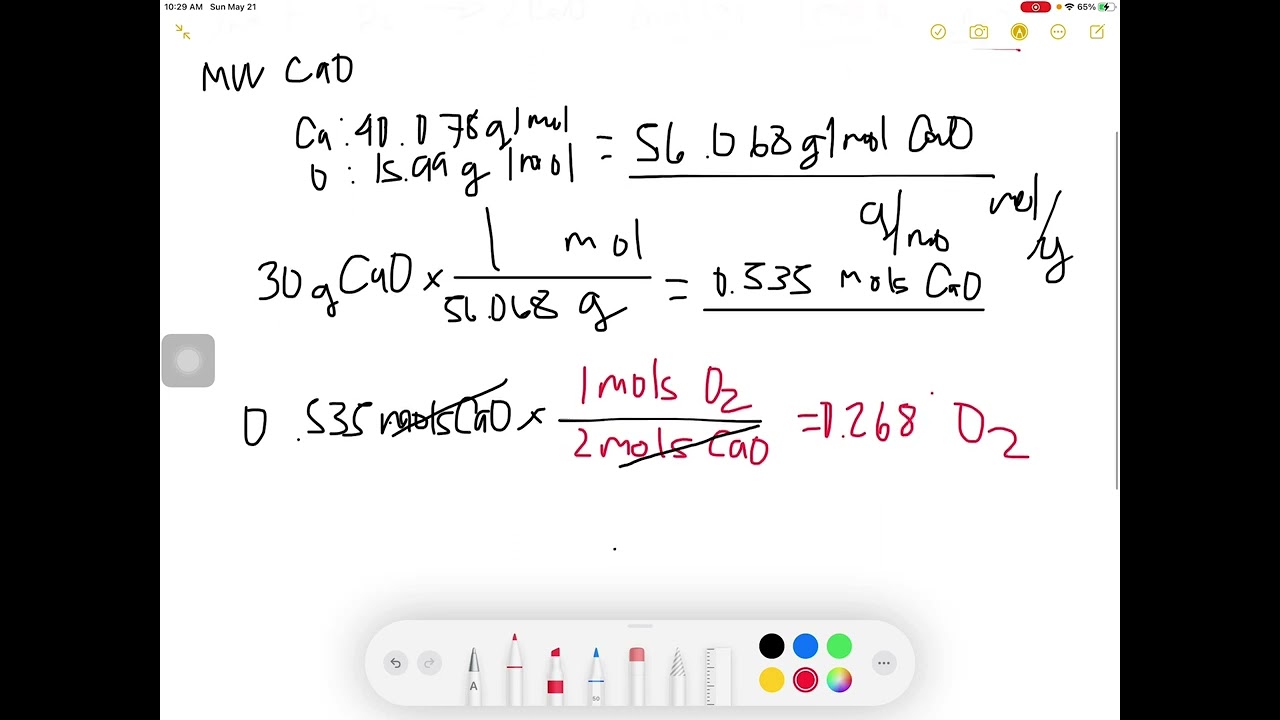 10:29 AM Sun May 21
65%
MW CaO
Ca: 40.078 g/mol
O : 15.99 g/mol
= 56.068 g/mol CaO
g/mo
mol/g
30 g CaO × 1 mol / 56.068 g = 0.535 mols CaO
0.535 mols CaO × 1 mols O2 / 2 mols CaO = 0.268 O2
A
50